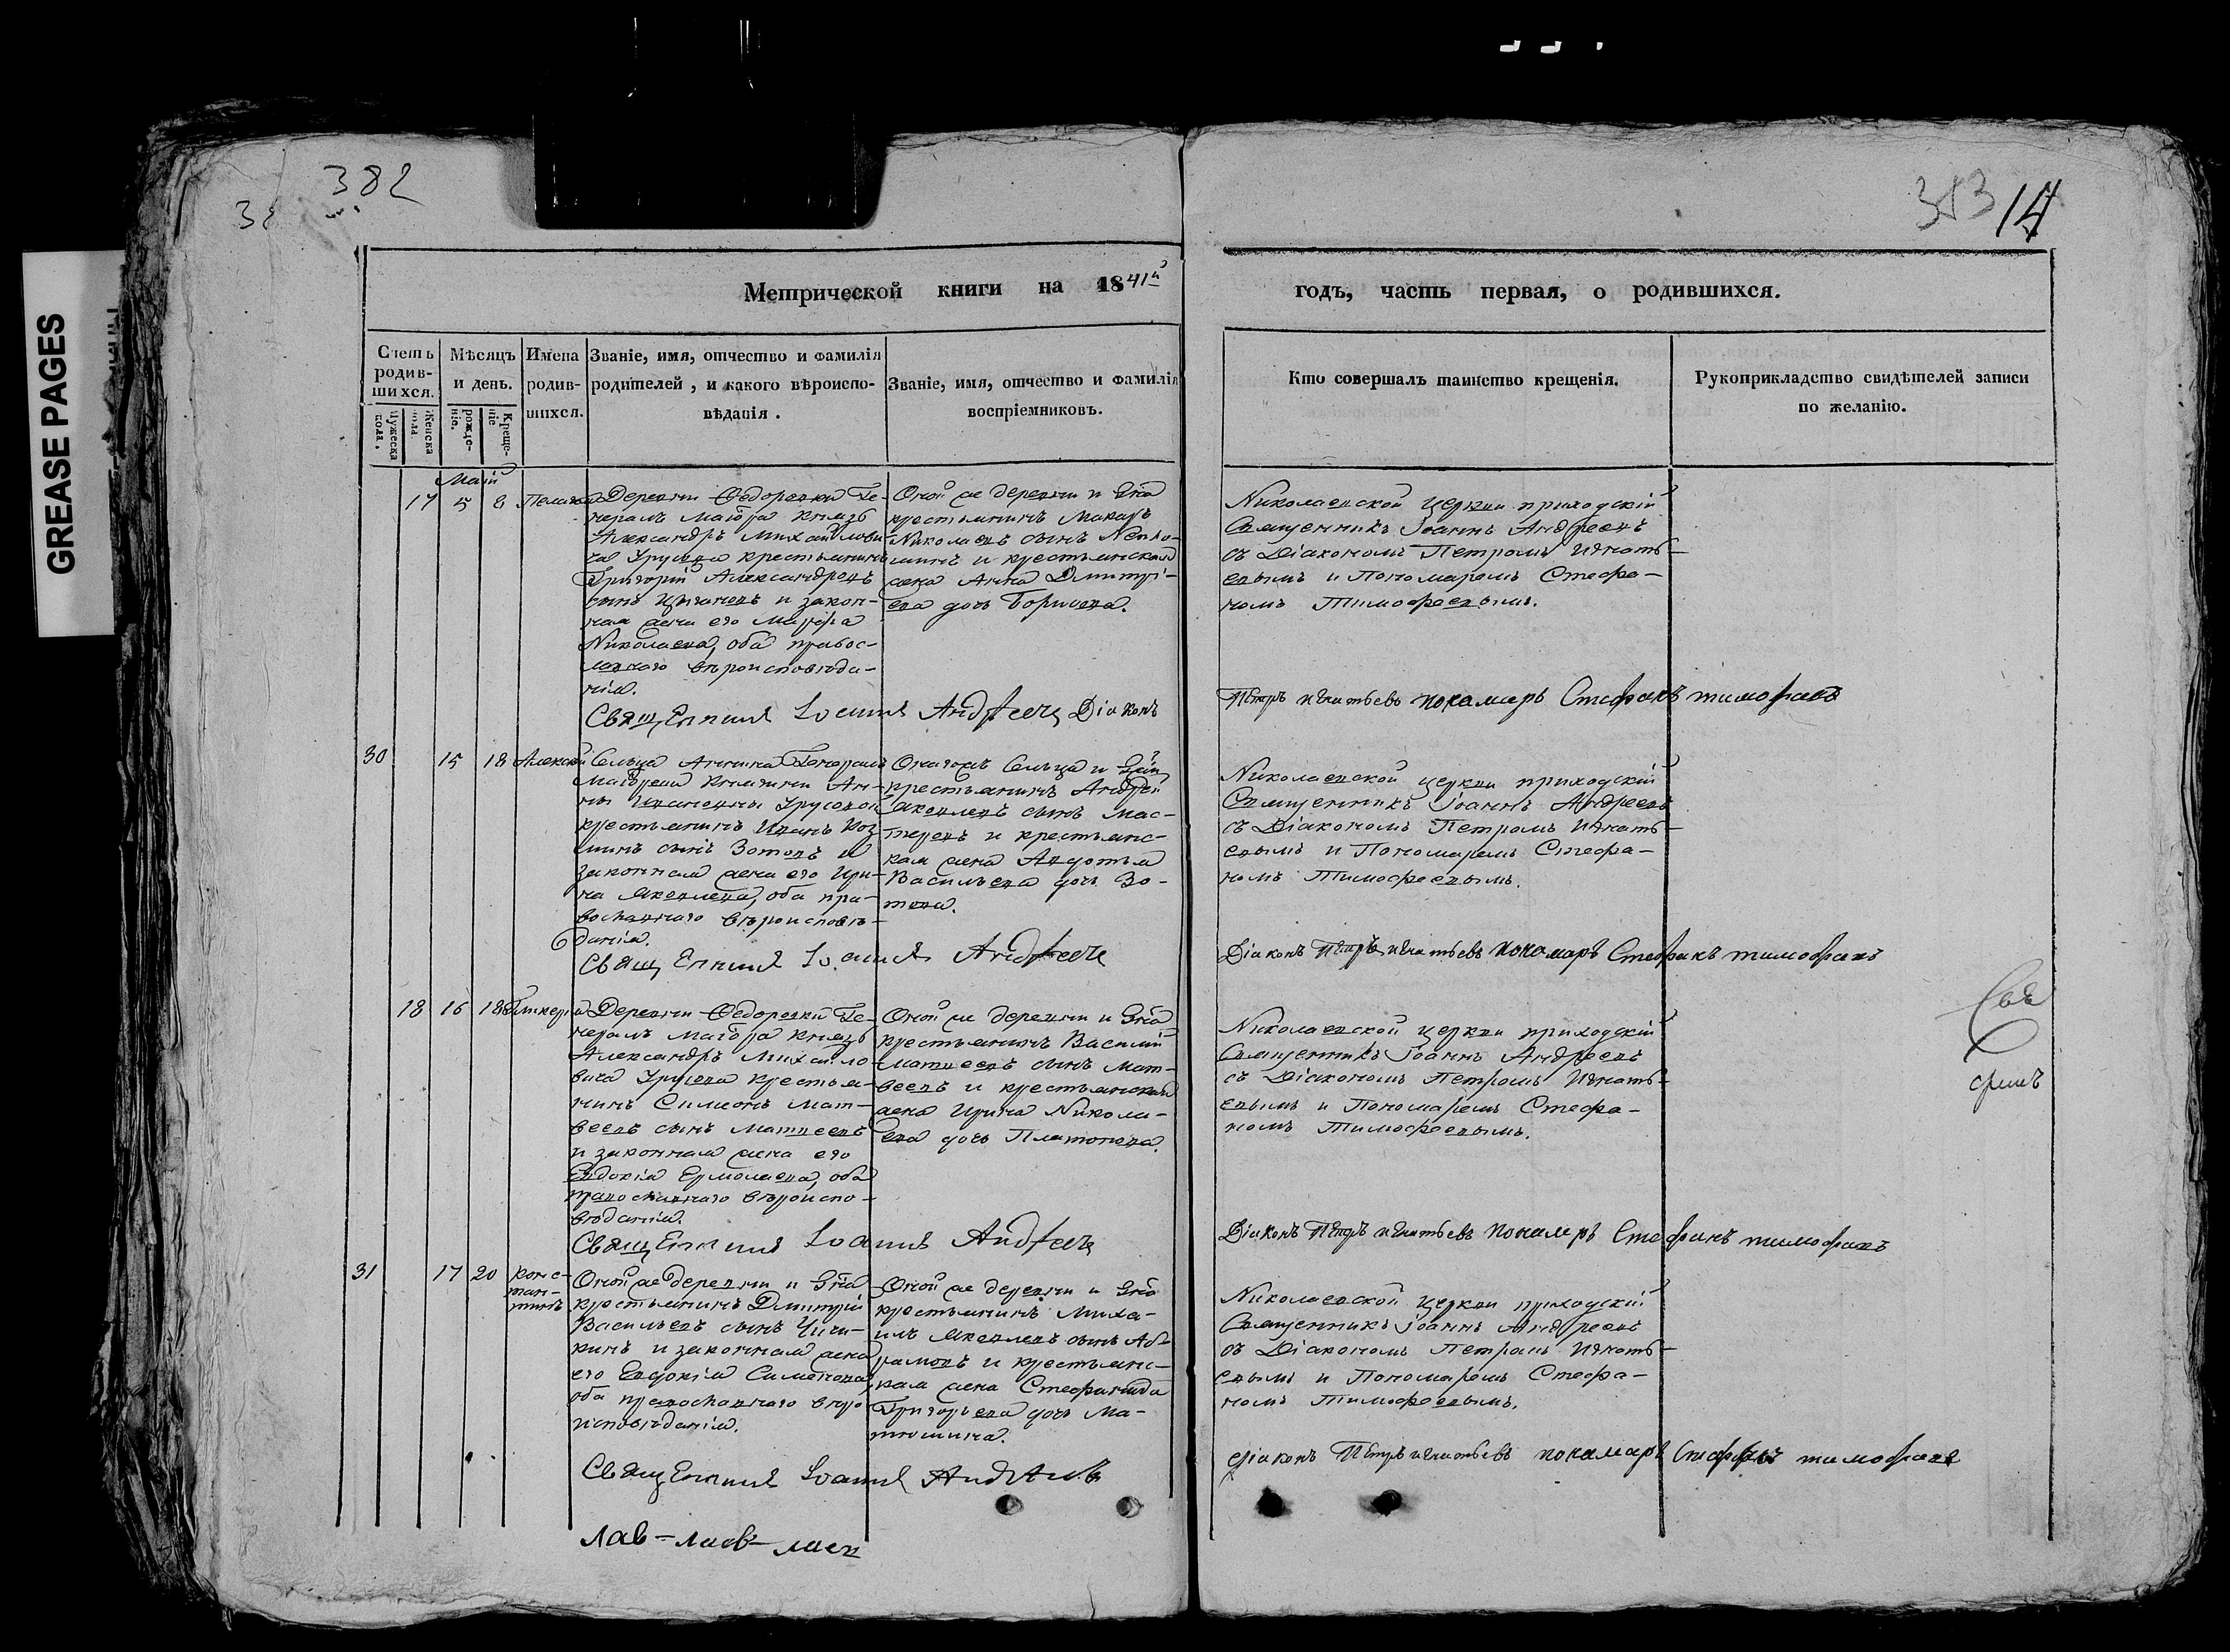 GREASE PAGES
382
383 14
Метрической книги на 1841й
годъ, часть первая, о родившихся.
Счетъ родившихся.
Мужеска пола.
Женска пола
Мѣсяцъ и день.
рожденіе.
Крещеніе
Имена родившихся.
Званіе, имя, отчество и фамилія
родителей, и какого вѣроиспо-
вѣданія.
Званіе, имя, отчество и фамилія
воспріемниковъ.
Кто совершалъ таинство крещенія.
Рукоприкладство свидѣтелей записи
по желанію.
Маій
17 5 8
Деревни Ѳедоровки Ге-
нералъ Маіора Князь
Александръ Михайлови-
ча Урусова крестьянинъ
Григорій Александровъ
сынъ и закон-
ная жена его Марѳа
Николаева, оба правос-
лавнаго вѣроисповѣда-
нія.
Оной же деревни и Гна
крестьянинъ Макаръ
Николаевъ сынъ
и крестьянская
жена Анна Дмитрі-
ева дочь Борисова.
Николаевской церкви приходскій
Священникъ Іоаннъ Андреевъ
съ Діакономъ Петромъ Игнать-
евымъ и Пономаремъ Стефа-
номъ Тимофеевымъ.
Священникъ Іоаннъ Андреевъ Діаконъ
Петръ игнатьевъ пономаръ Стефанъ тимофеевъ
30 15 18 Алексей
Сельца Аннина Генералъ
Маіорши Княгини Ан-
ны Ивановны Урусовой
крестьянинъ Иванъ Коз
минъ сынъ Зотовъ и
законная жена его Ири-
на Яковлева, оба пра-
вославнаго вѣроисповѣ-
данія.
Онагожъ Сельца и Гжи
крестьянинъ Андрей
Яковлевъ сынъ Мас-
теровъ и крестьянс-
кая жена Авдотья
Васильева дочь Зо-
това.
Николаевской церкви приходскій
Священникъ Іоаннъ Андреевъ
съ Діакономъ Петромъ Игнать-
евымъ и Пономаремъ Стефа-
номъ Тимофеевымъ.
Священникъ Іоаннъ Андреевъ
Діаконъ Петръ игнатьевъ пономаръ Стефанъ тимофеевъ
18 16 18 Гликерія
Деревни Ѳедоровки Ге-
нералъ Маіора Князь
Александръ Михайло-
вича Урусова крестья-
нинъ Симеонъ Мат-
веевъ сынъ Матвеевъ
и законная жена его
Евдокія Ермолаева, оба
православнаго вѣроиспо-
вѣданія.
Оной же деревни и Гна
крестьянинъ Василій
Матвеевъ сынъ Мат-
веевъ и крестьянская
жена Ирина Никола-
ева дочь Платонова.
Николаевской церкви приходскій
Священникъ Іоаннъ Андреевъ
съ Діакономъ Петромъ Игнать-
евымъ и Пономаремъ Стефа-
номъ Тимофеевымъ.
Священникъ Іоаннъ Андреевъ
Діаконъ Петръ игнатьевъ пономаръ Стефанъ тимофеевъ
31 17 20 Конс-
тан-
тинъ
Оной же деревни и Гна
крестьянинъ Дмитрій
Васильевъ сынъ Чичи-
кинъ и законная жена
его Евдокія Симеонова
оба православнаго вѣро
исповѣданія.
Оной же деревни и Гна
крестьянинъ Миха-
илъ Яковлевъ сынъ Аб-
рамовъ и крестьянс-
кая жена Стефанида
Григорьева дочь Ма-
тюшина.
Николаевской церкви приходскій
Священникъ Іоаннъ Андреевъ
съ Діакономъ Петромъ Игнать-
евымъ и Пономаремъ Стефа-
номъ Тимофеевымъ.
Священникъ Іоаннъ Андреевъ
діаконъ Петръ игнатьевъ пономаръ Стефанъ тимофеевъ